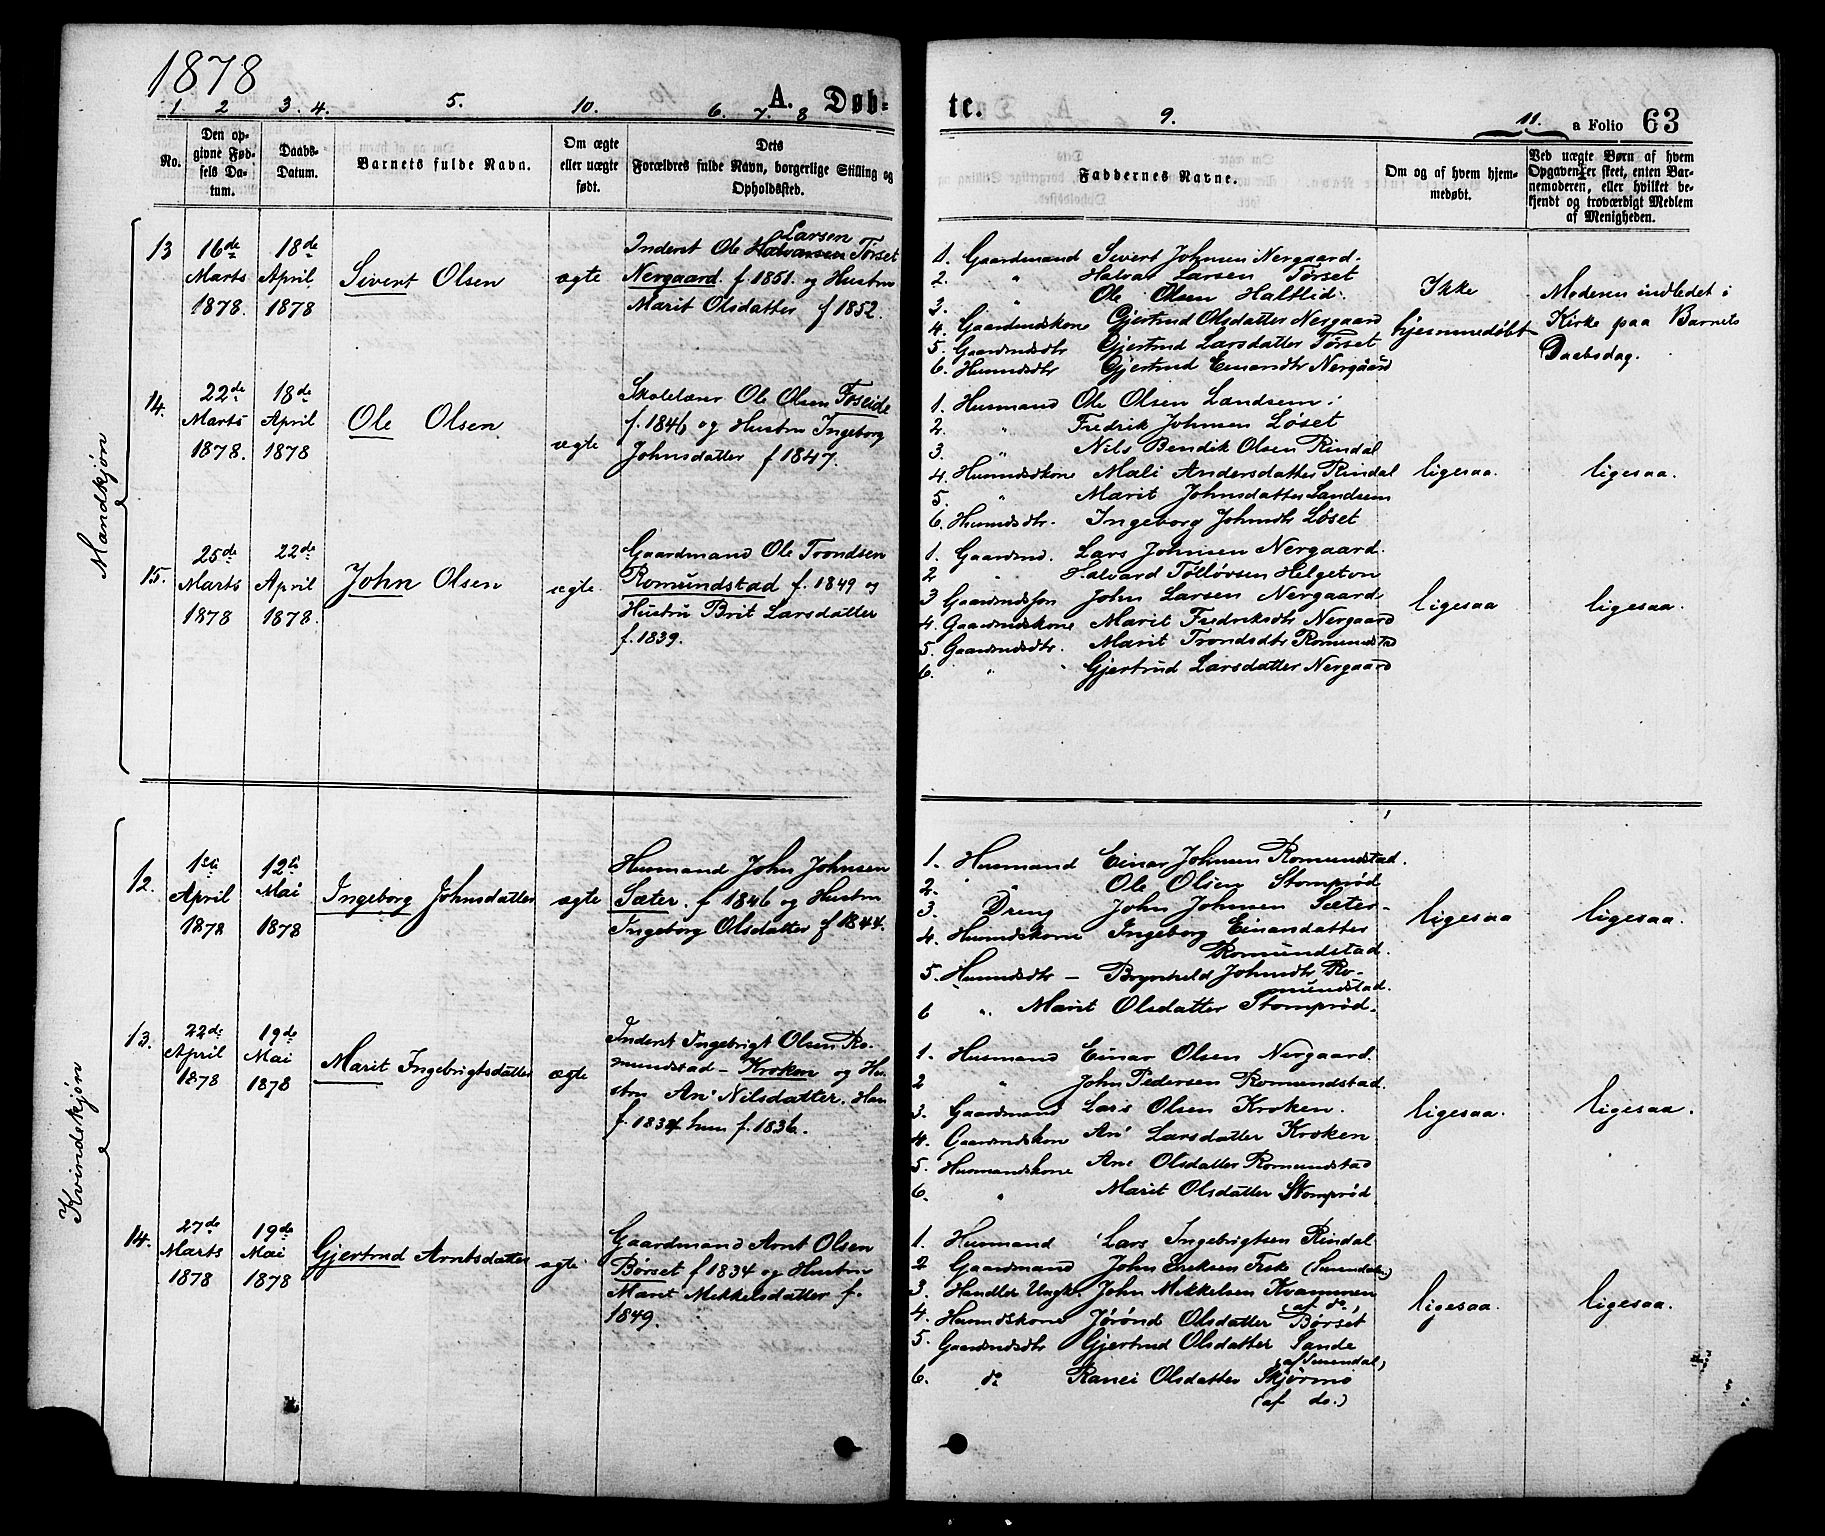 1878
1. 2 3. 4. 5. 10. 6. 7. 8
A. Døb=
No.
Den op-
givne Fød-
sels Da-
tum.
Daabs-
Datum.
Barnets fulde Navn.
Om ægte
eller uægte
født.
Dets
Forældres fulde Navn, borgerlige Stilling og
Opholdssted.
te.
9.
11.
a Folio 63
Faddernes Navne.
Om og af hvem hjem-
medøbt.
Ved uægte Børn af hvem
Opgaven er skeet, enten Bar-
nemoderen, eller hvilket be-
kjendt og troværdigt Medlem
af Menigheden.
Mandkjøn
13
16de
Marts
1878.
18de
April
1878
Sivert Olsen
ægte
Larsen
Inderst Ole Halvorsen Tørset
Nergaard f. 1851. og Hustru
Marit Olsdatter f 1852.
1. Gaardmand Sivert Johnsen Nergaard.
2. " Halvor Larsen Tørset
3. " Ole Olsen Haltlid.
4. Gaardmdskone Gjertrud Olsdatter Nergaard
5. Gaardmdsdtr Gjertrud Larsdatter Tørset
6. Husmdsdtr Gjertrud Einarsdtr Nergaard
Ikke
hjemmedøbt
Moderen indledet i
Kirke paa Barnets
Daabsdag.
14.
22de
Marts
1878.
18de
April
1878
Ole Olsen
ægte
Skolelærer Ole Olsen Foseide
f. 1846 og Hustru Ingeborg
Johnsdatter f 1847.
1. Husmand Ole Olsen Landsem.
2. " Fredrik Johnsen Løset
3. " Nils Bendik Olsen Rindal
4. Husmdskone Mali Andersdatter Rindal
5. " Marit Johnsdatter Landsem
6. Husmdsdtr. Ingeborg Johnsdtr Løset
ligesaa.
ligesaa.
15.
25de
Marts
1878
22de
April
1878.
John Olsen
ægte
Gaardmand Ole Trondsen
Romundstad f. 1849 og
Hustru Brit Larsdatter
f. 1839.
1. Gaardmd. Lars Johnsen Nergaard.
2 " Halvard Tølløvsen Helgeton
3 Gaardmdsøn John Larsen Nergaard
4. Gaardmdskone Marit Fredriksdtr Nergaard
5. Gaardmdsdtr. Marit Trondsdtr Romundstad
6. " Gjertrud Larsdatter Nergaard
ligesaa
ligesaa.
Kvindekjøn
12.
1ste
April
1878
12te
Mai
1878
Ingeborg Johnsdatter
ægte
Husmand John Johnsen
Sæter. f 1846 og Hustru
Ingeborg Olsdatter f 1844.
1. Husmand Einar Johnsen Romundstad.
2. " Ole Olsen Stomprød
3. Dreng John Johnsen Sæter
4. Husmdskone Ingeborg Einarsdatter
Romundstad.
5. Husmdsdtr - Brynhild Johnsdtr Ro-
mundstad.
6 " Marit Olsdatter Stomprød.
ligesaa
ligesaa.
13.
22de
April
1878
19de
Mai
1878
Marit Ingebrigtsdatter
ægte
Inderst Ingebrigt Olsen Ro-
mundstad - Kroken og Hu-
stru Ani Nilsdatter. Han
f. 1834. hun f. 1836.
1. Husmand Einar Olsen Nergaard.
2 " John Pedersen Romundstad.
3. Gaardmand Lars Olsen Kroken.
4. Gaardmdskon Ani Larsdatter Kroken
5. Husmandskone Ane Olsdatter Romundstad
6. " Marit Olsdatter Stomprød.
ligesaa.
ligesaa.
14.
27de
Marts
1878
19de
Mai
1878
Gjertrud Arntsdatter
ægte
Gaardmand Arnt Olsen
Børset f 1834 og Hustru
Marit Mikkelsdatter f.
1849.
1. Husmand Lars Ingebrigtsen Rindal
2 Gaardmand John Eriksen Fiske (Surendalen)
3. Handler Ungk. John Mikkelsen Kvammen
(af do,
4. Husmdskone Jørønd Olsdatter Børset
5. Gaardmdsdtr Gjertrud Olsdatter Sande
(af Surendal)
6. do Ranei Olsdatter Skjørmo
(af do.)
ligesaa.
ligesaa.